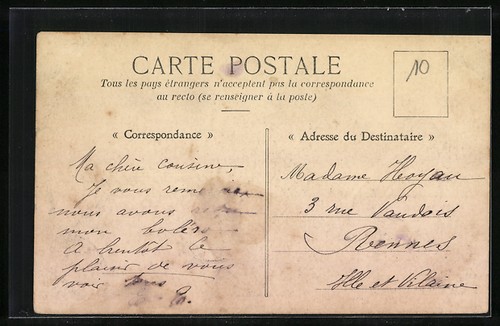 10
CARTE POSTALE
Tous les pays étrangers n'acceptent pas la correspondance
au recto (se renseigner à la poste)
« Correspondance »
Ma chère cousine,
Je vous
nous avons
mon boléro
A bientôt le
plaisir de vous
voir
« Adresse du Destinataire »
Madame
3 rue
Rennes
Ille et Vilaine